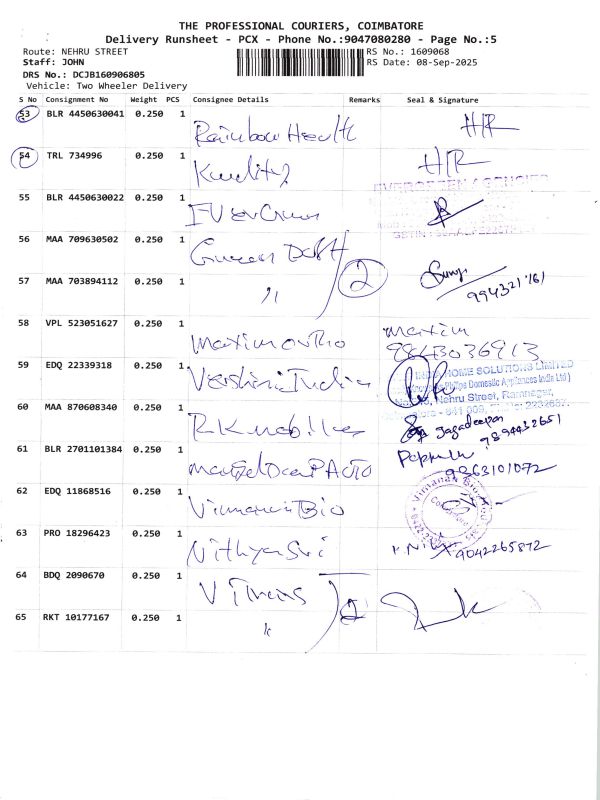 THE PROFESSIONAL COURIERS, COIMBATORE
Delivery Runsheet - PCX - Phone No.:9047080280 - Page No.:5
Route: NEHRU STREET
RS No.: 1609068
Staff: JOHN
RS Date: 08-Sep-2025
DRS No.: DCJB160906805
Vehicle: Two Wheeler Delivery
S No Consignment No Weight PCS Consignee Details Remarks Seal & Signature
53 BLR 4450630041 0.250 1 Rainbow Health H/R
54 TRL 734996 0.250 1 H/R
EVERGREEN AGENCIES
55 BLR 4450630022 0.250 1
56 MAA 709630502 0.250 1
57 MAA 703894112 0.250 1 〃 2
58 VPL 523051627 0.250 1 Maxim Ortho Maxim
9843036913
59 EDQ 22339318 0.250 1 India HOME SOLUTIONS LIMITED
Philips Domestic Appliances India Ltd)
Nehru Street, Ramnagar,
60 MAA 870608340 0.250 1 Jagadeepan
7894432651
61 BLR 2701101384 0.250 1
9363101072
62 EDQ 11868516 0.250 1 Vimanan Bio
63 PRO 18296423 0.250 1 Nithya Sri 9042265872
64 BDQ 2090670 0.250 1 2
65 RKT 10177167 0.250 1 〃